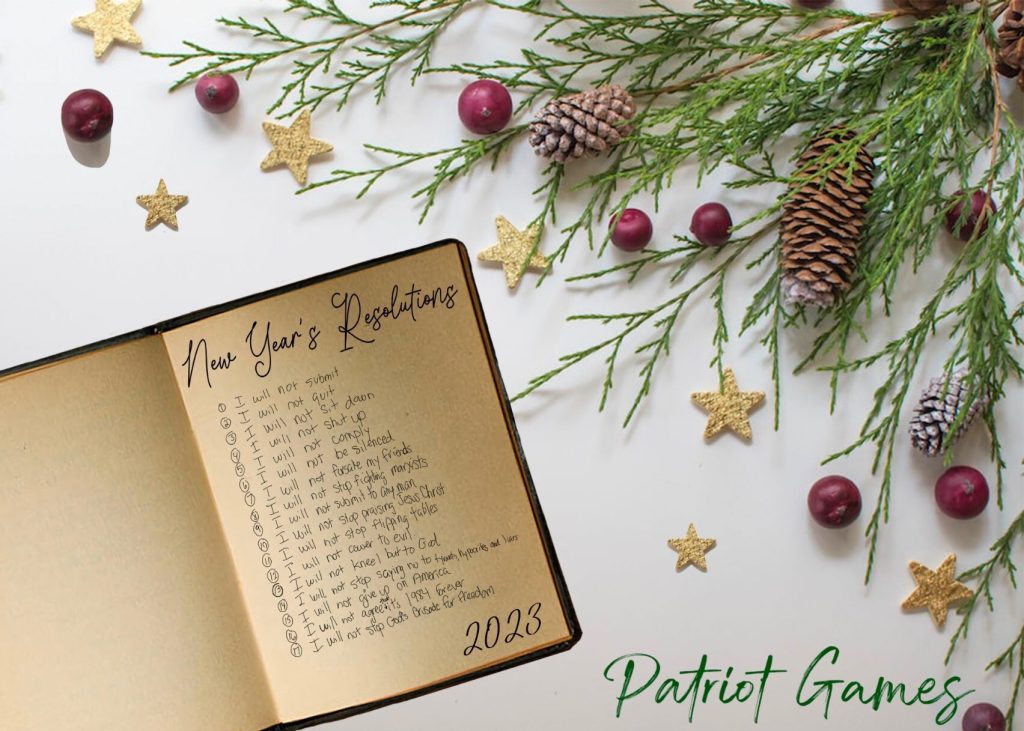 New Year's Resolutions
① I will not submit
② I will not quit
③ I will not sit down
④ I will not shut up
⑤ I will not comply
⑥ I will not be silenced
⑦ I will not forsake my friends
⑧ I will not stop fighting marxists
⑨ I will not submit to any man
⑩ I will not stop praising Jesus Christ
⑪ I will not stop flipping tables
⑫ I will not cower to evil
⑬ I will not kneel but to God
⑭ I will not stop saying no to tyrants, hypocrites and liars
⑮ I will not give up on America
⑯ I will not agree that it's 1984 forever
⑰ I will not stop God's Crusade for Freedom
2023
Patriot Games